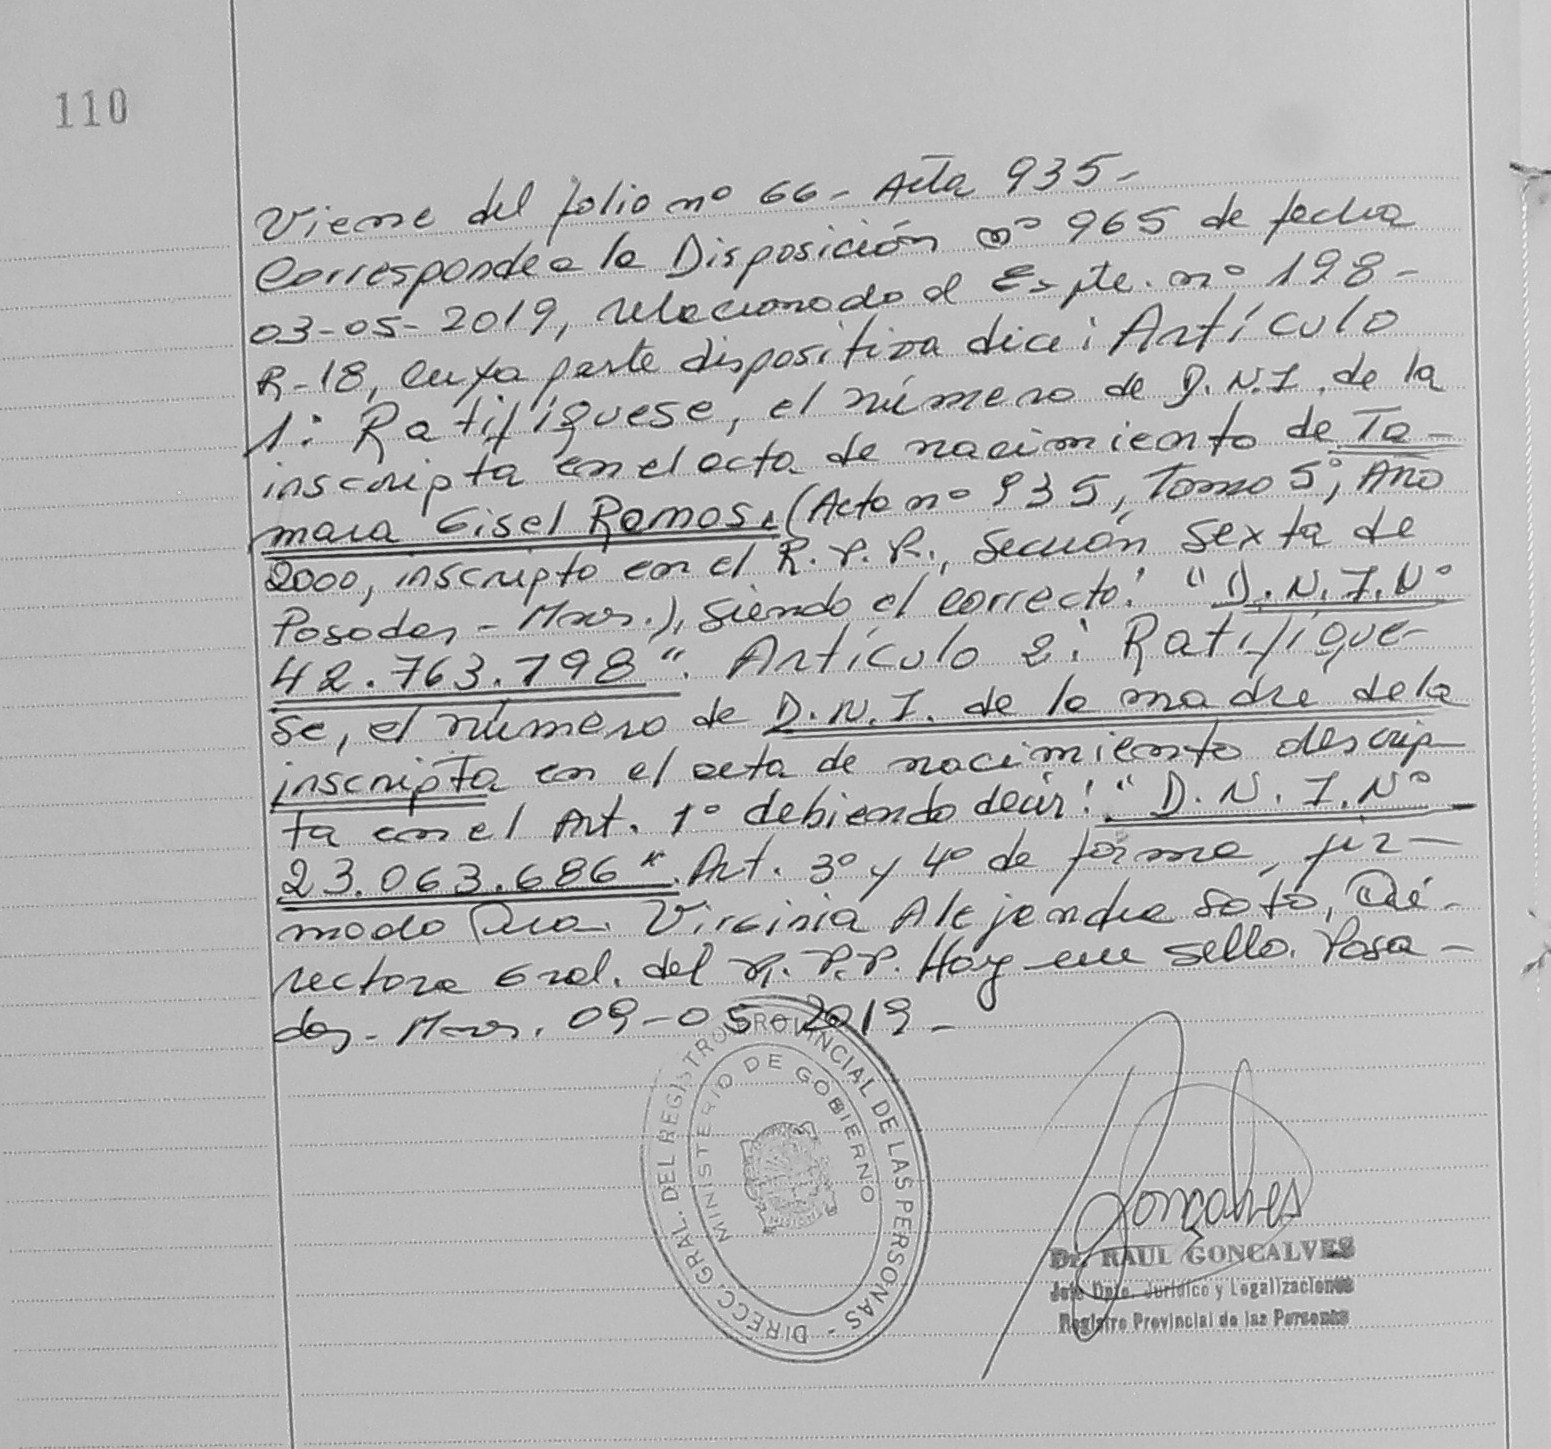 110
Viene del folio nº 66 - Acta 935 -
Corresponde a la Disposición nº 965 de fecha
03-05-2019, relacionado al Expte. nº 198-
R-18, cuya parte dispositiva dice: Artículo
1: Ratifíquese, el número de D.N.I. de la
inscripta en el acta de nacimiento de Ta-
mara Gisel Ramos, (Acta nº 935, Tomo 5º, Año
2000, inscripto en el R.P.P., Sección Sexta de
Posadas - Mnes.), siendo el correcto: "D.N.I.Nº
42.763.798". Artículo 2: Ratifíque-
se, el número de D.N.I. de la madre de la
inscripta en el acta de nacimiento descrip-
ta en el Art. 1º debiendo decir: "D.N.I.Nº
23.063.686". Art. 3º y 4º de forma, fir-
mado Dra. Virginia Alejandra Soto, Di-
rectora Gral. del R.P.P. Hay un sello. Posa-
das - Mnes. 09-05-2019 -
DIRECC. GRAL. DEL REGISTRO PROVINCIAL DE LAS PERSONAS -
MINISTERIO DE GOBIERNO
MISIONES
Goncalves
Dr. RAUL GONCALVES
Jefe Dpto. Jurídico y Legalizaciones
Registro Provincial de las Personas